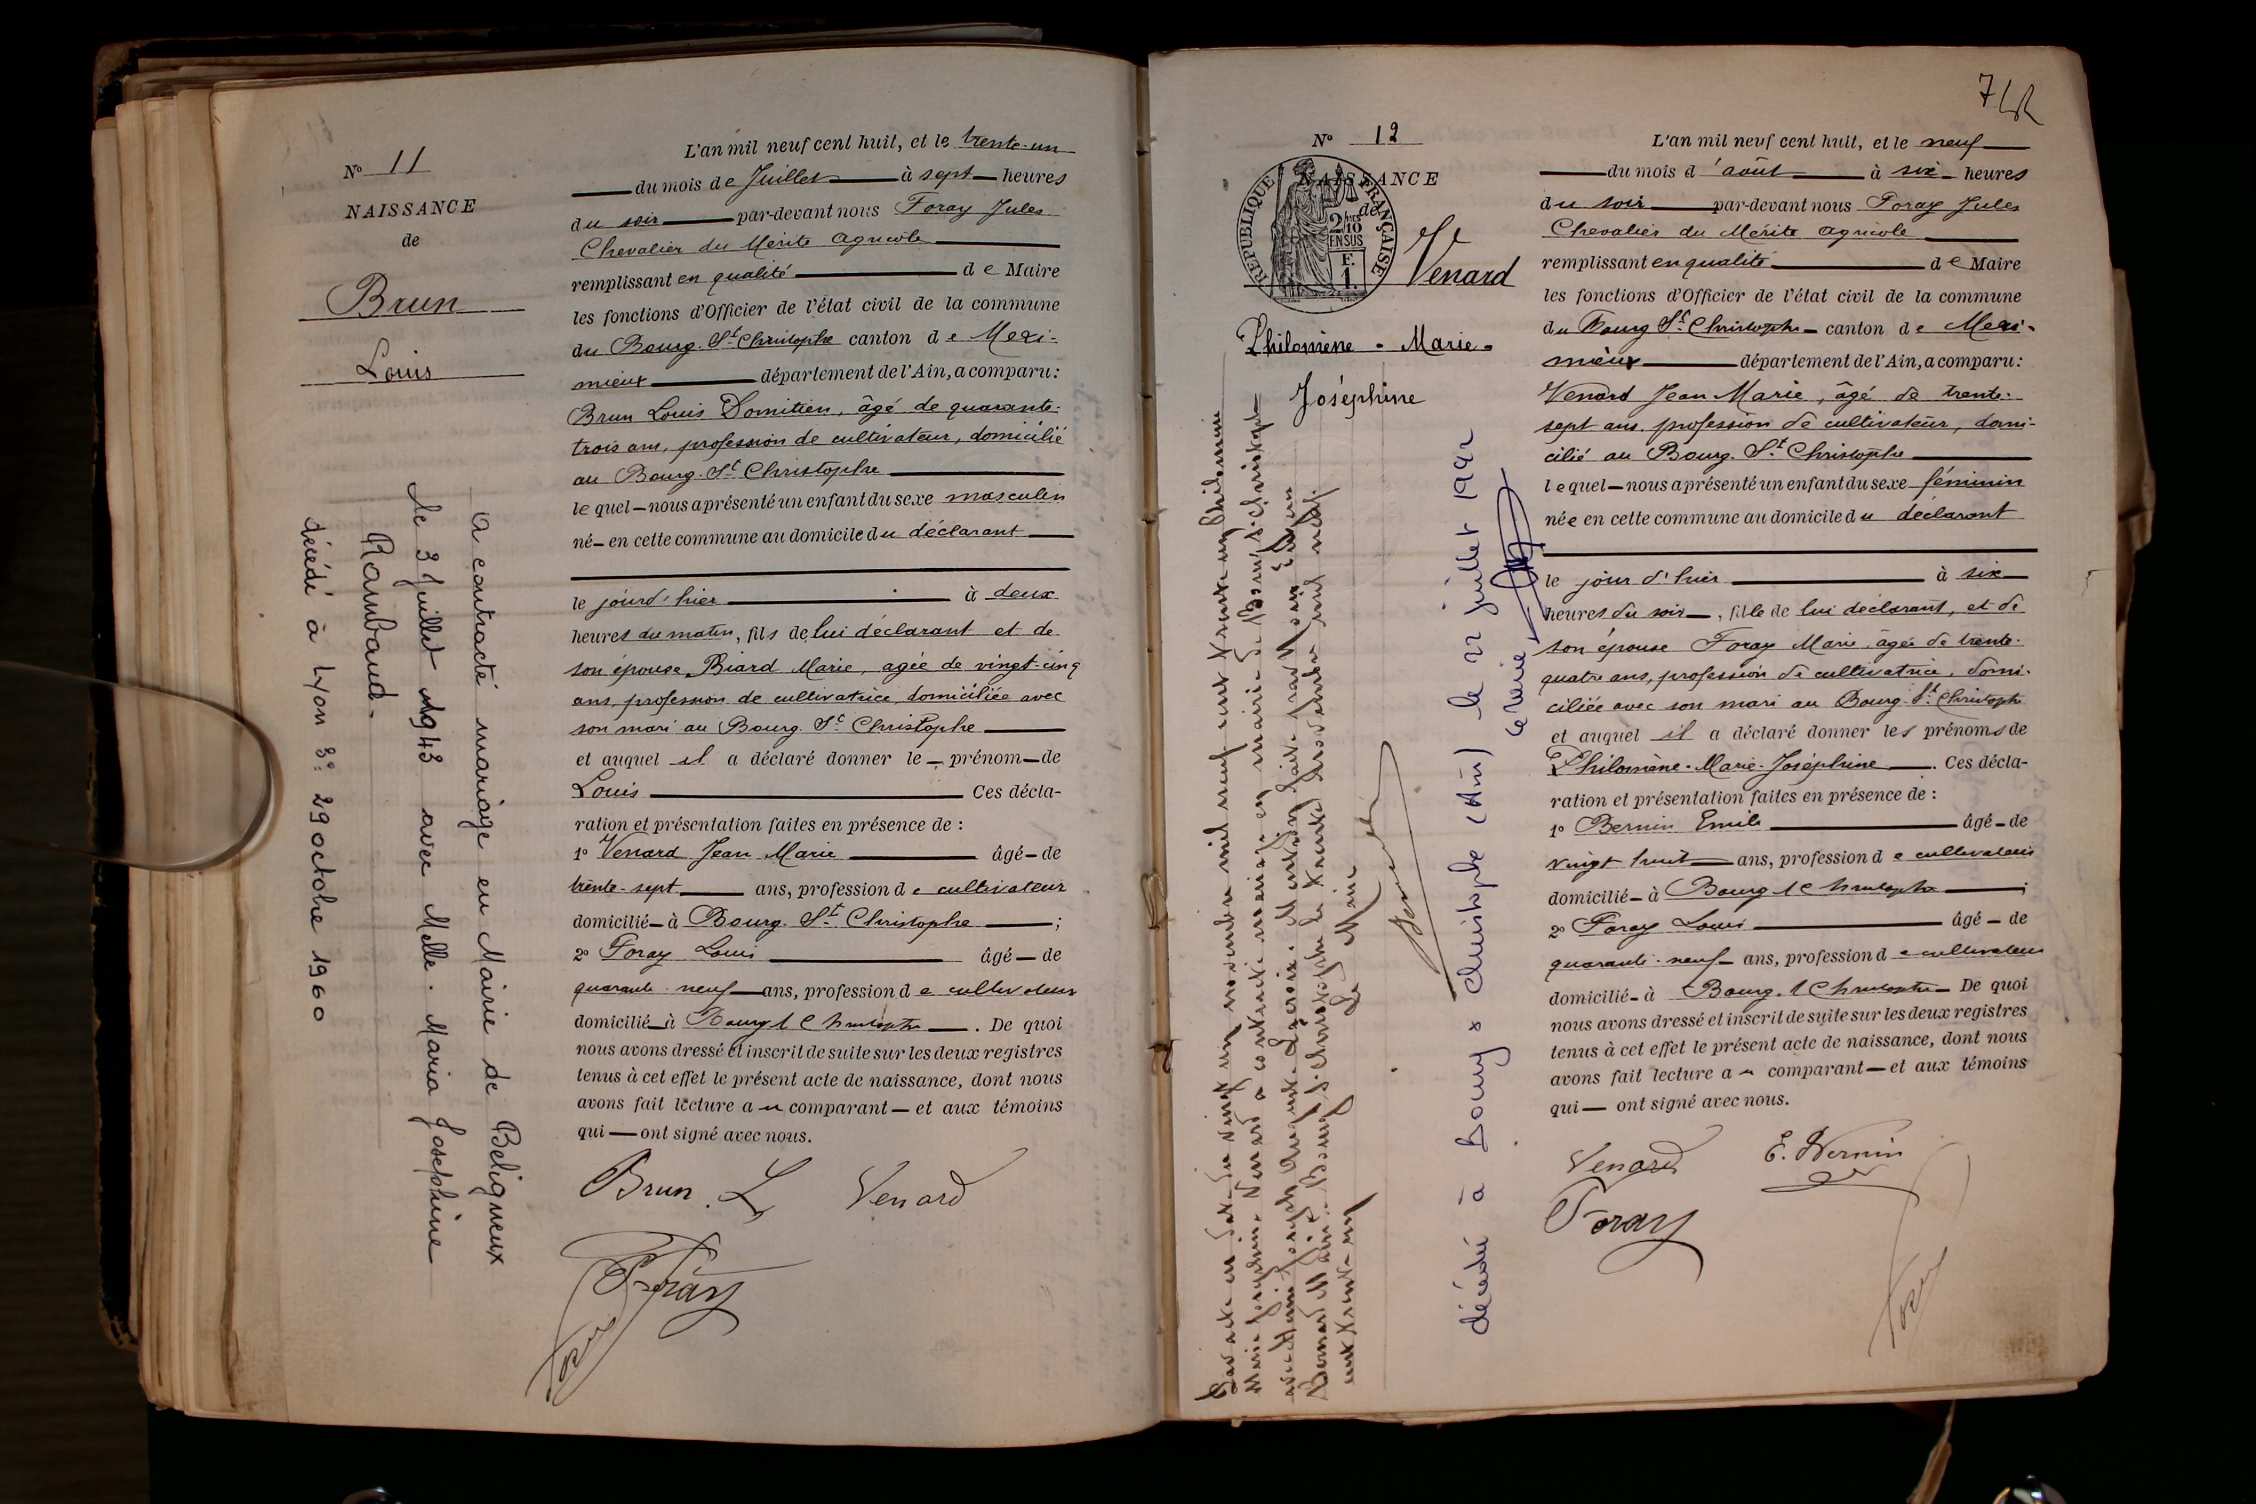 Nº 11
NAISSANCE
de
Brun
Louis
A contracté mariage en Mairie de Beligneux
le 3 Juillet 1943 avec Melle. Maria Josephine
Rambaud.
décédé à Lyon 3e 29 octobre 1960
L'an mil neuf cent huit, et le trente-un
du mois de Juillet à sept heures
du soir par-devant nous Foray Jules
Chevalier du Mérite Agricole
remplissant en qualité de Maire
les fonctions d'Officier de l'état civil de la commune
du Bourg-St Christophe canton de Mexi-
mieux département de l'Ain, a comparu:
Brun Louis Domitien, âgé de quarante-
trois ans, profession de cultivateur, domicilié
au Bourg-St Christophe
lequel nous a présenté un enfant du sexe masculin
né en cette commune au domicile du déclarant
le jour d'hier à deux
heures du matin, fils de lui déclarant et de
son épouse Biard Marie, agée de vingt-cinq
ans, profession de cultivatrice, domiciliée avec
son mari au Bourg St Christophe
et auquel il a déclaré donner le prénom de
Louis Ces décla-
ration et présentation faites en présence de :
1º Venard Jean Marie âgé de
trente-sept ans, profession de cultivateur
domicilié à Bourg-St Christophe ;
2º Foray Louis âgé de
quarante-neuf ans, profession de cultivateur
domicilié à Bourg St Christophe. De quoi
nous avons dressé et inscrit de suite sur les deux registres
tenus à cet effet le présent acte de naissance, dont nous
avons fait lecture au comparant et aux témoins
qui ont signé avec nous.
Brun L Venard
Foray
Foray
7
Nº 12
NAISSANCE
de
RÉPUBLIQUE FRANÇAISE
2/10
EN SUS
F.
1.
Venard
Philomène - Marie -
Joséphine
Par acte en date du vingt un novembre mil neuf cent trente un Philomène
Marie Joséphine Venard a contracté mariage en mairie de Bourg St Christophe
avec
Bourg St Christophe le trente novembre mil neuf
cent trente un Le Maire
décédée à Bourg St Christophe (Ain) le 22 juillet 1992
Le Maire
L'an mil neuf cent huit, et le neuf
du mois d'août à six heures
du soir par-devant nous Foray Jules
Chevalier du Mérite Agricole
remplissant en qualité de Maire
les fonctions d'Officier de l'état civil de la commune
du Bourg St Christophe canton de Mexi-
mieux département de l'Ain, a comparu:
Venard Jean Marie, âgé de trente-
sept ans, profession de cultivateur, domi-
cilié au Bourg-St Christophe
lequel nous a présenté un enfant du sexe féminin
née en cette commune au domicile du déclarant
le jour d'hier à six
heures du soir, fille de lui déclarant, et de
son épouse Foray Marie, âgée de trente-
quatre ans, profession de cultivatrice, domi-
ciliée avec son mari au Bourg-St Christophe
et auquel il a déclaré donner les prénoms de
Philomène-Marie-Joséphine. Ces décla-
ration et présentation faites en présence de :
1º Bernin Emile âgé de
vingt huit ans, profession de cultivateur
domicilié à Bourg St Christophe ;
2º Foray Louis âgé de
quarante-neuf ans, profession de cultivateur
domicilié à Bourg-St Christophe De quoi
nous avons dressé et inscrit de suite sur les deux registres
tenus à cet effet le présent acte de naissance, dont nous
avons fait lecture au comparant et aux témoins
qui ont signé avec nous.
Venard E. Bernin
Foray
Foray